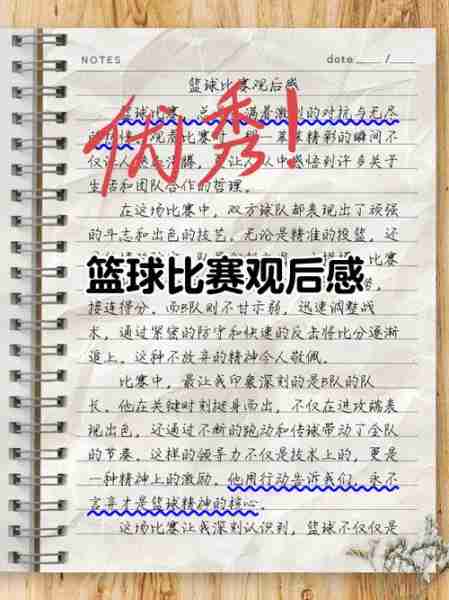 NOTES
date ____ / ____
篮球比赛观后感
优秀!
篮球比赛,总 满着激烈的对抗与无尽
的 情。观看比赛 那一幕幕精彩的瞬间不
仅让人 ,更让人从中感悟到许多关于
生活和团队合作的哲理。
在这场比赛中,双方球队都表现出了顽强
的斗志和出色的技艺。无论是精准的投篮,还
比赛
篮球比赛观后感
接连得分。而B队则不甘示弱,迅速调整战
术,通过紧密的防守和快速的反击将比分逐渐
追上。这种不放弃的精神令人敬佩。
比赛中,最让我印象深刻的是B队的队
长。他在关键时刻挺身而出,不仅在进攻端表
现出色,还通过不断的跑动和传球带动了全队
的节奏。这样的领导力不仅是技术上的,更是
一种精神上的激励。他用行动告诉我们,永不
言弃才是篮球精神的核心。
这场比赛让我深刻认识到,篮球不仅仅是